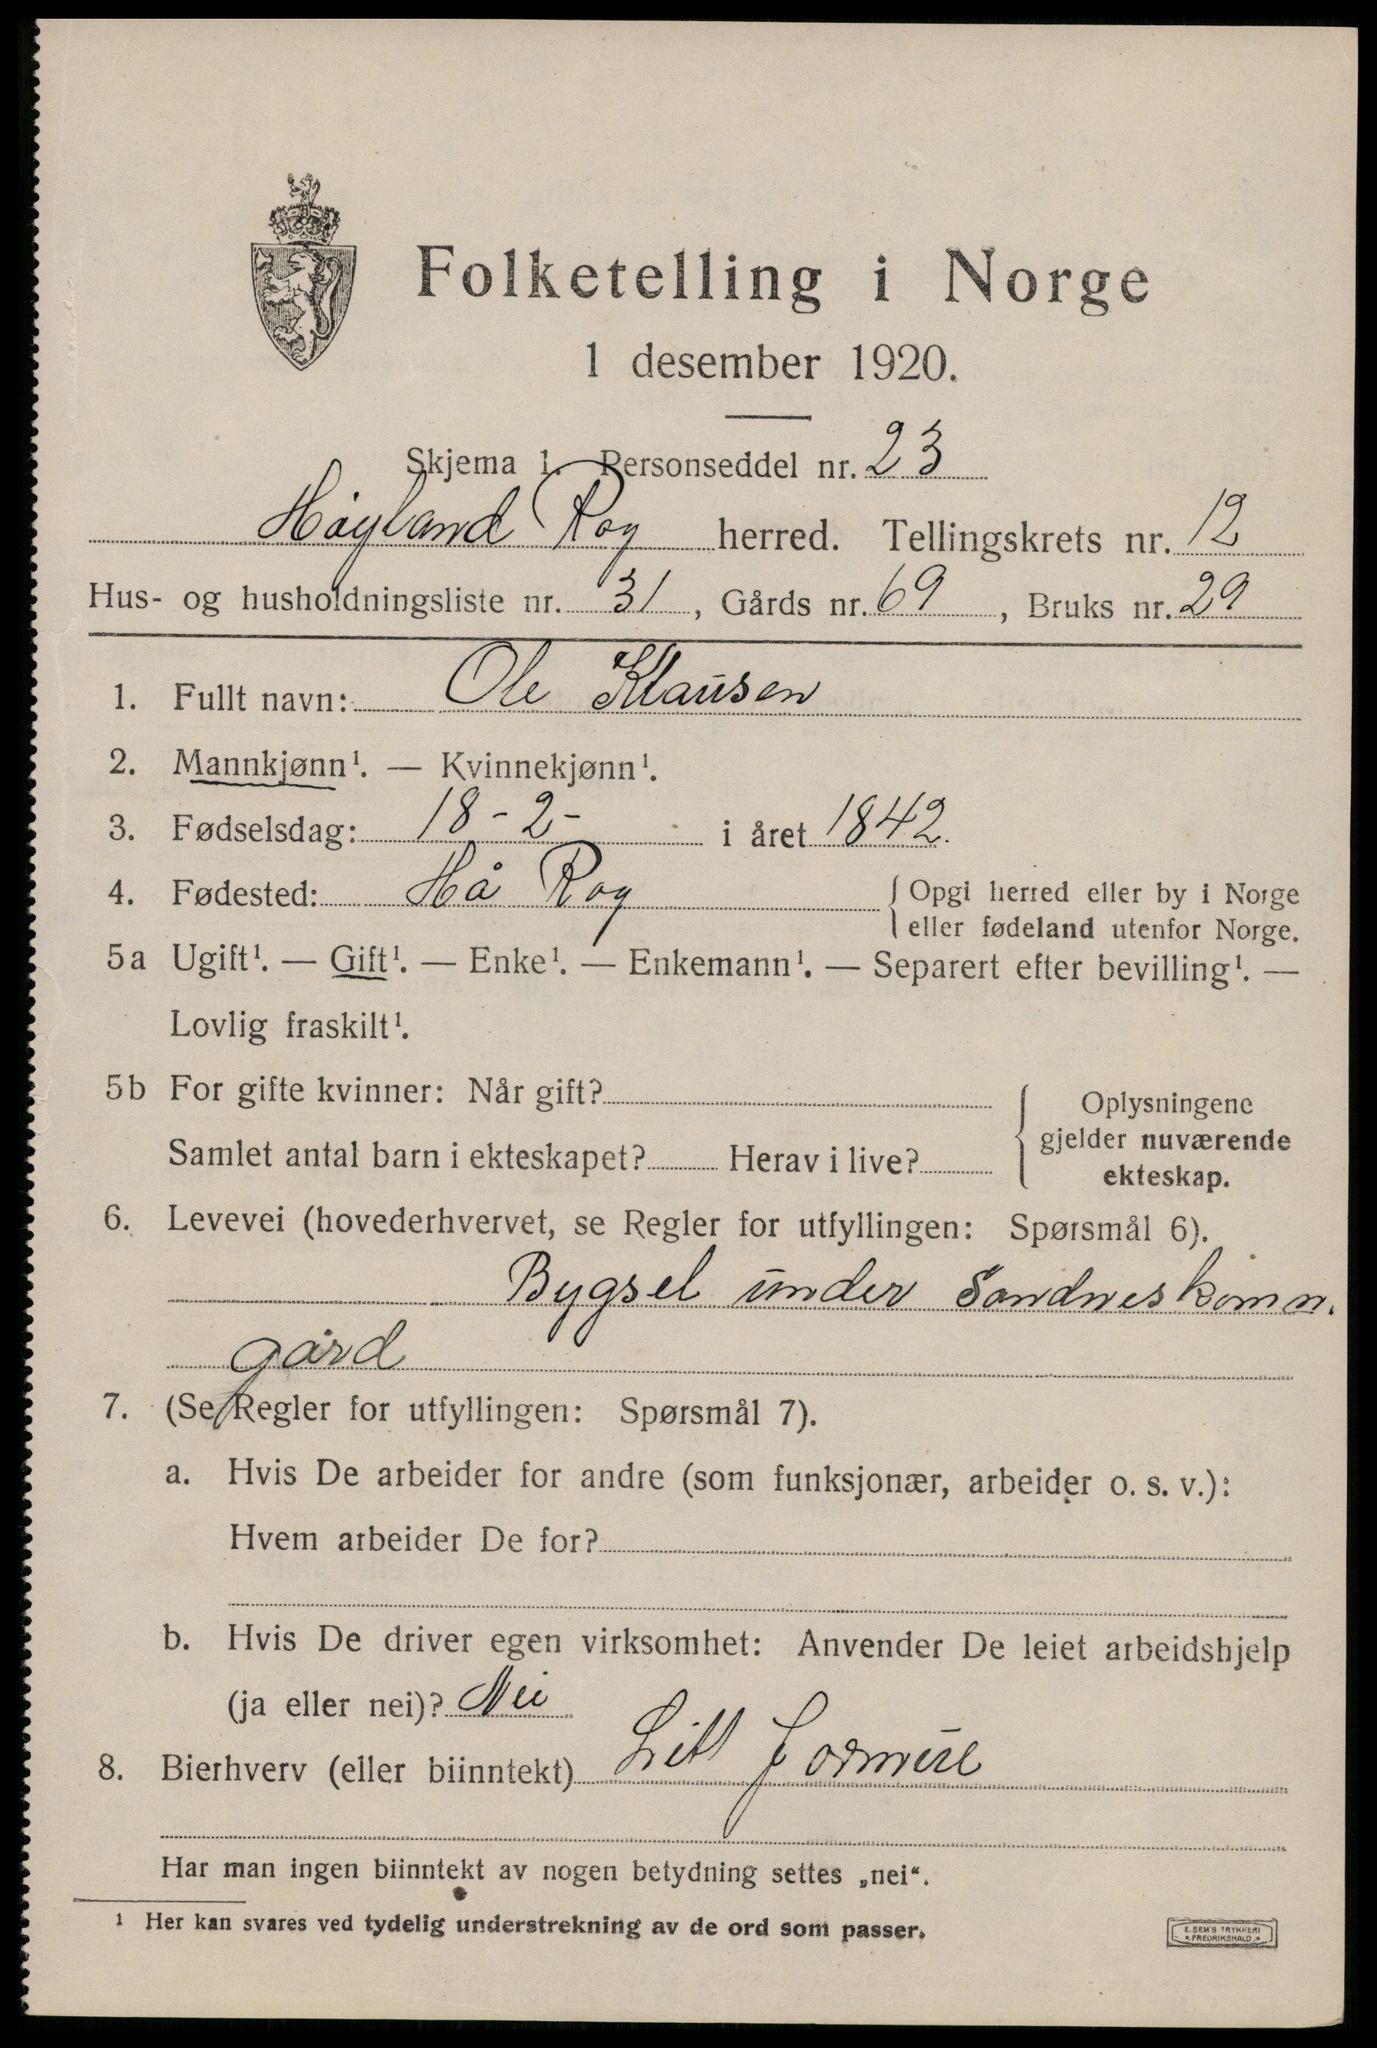 Folketelling i Norge
1 desember 1920.
Skjema 1. Personseddel nr. 23
Høyland Rog herred. Tellingskrets nr. 12
Hus- og husholdningsliste nr. 31, Gårds nr. 69, Bruks nr. 29
1. Fullt navn: Ole Klausen
2. Mannkjønn¹. — Kvinnekjønn¹.
3. Fødselsdag: 18-2- i året 1842.
4. Fødested: Hå Rog { Opgi herred eller by i Norge
eller fødeland utenfor Norge.
5a Ugift¹. — Gift¹. — Enke¹. — Enkemann¹. — Separert efter bevilling¹. —
Lovlig fraskilt¹.
5b For gifte kvinner: Når gift?
Samlet antal barn i ekteskapet? Herav i live?
Oplysningene
gjelder nuværende
ekteskap.
6. Levevei (hovederhvervet, se Regler for utfyllingen: Spørsmål 6).
Bygsel under Sandneskomn.
gård
7. (Se Regler for utfyllingen: Spørsmål 7).
a. Hvis De arbeider for andre (som funksjonær, arbeider o. s. v.):
Hvem arbeider De for?
b. Hvis De driver egen virksomhet: Anvender De leiet arbeidshjelp
(ja eller nei)? Nei
8. Bierhverv (eller biinntekt) Litt
Har man ingen biinntekt av nogen betydning settes „nei“.
1 Her kan svares ved tydelig understrekning av de ord som passer.
E. SEM'S TRYKKERI
FREDRIKSHALD